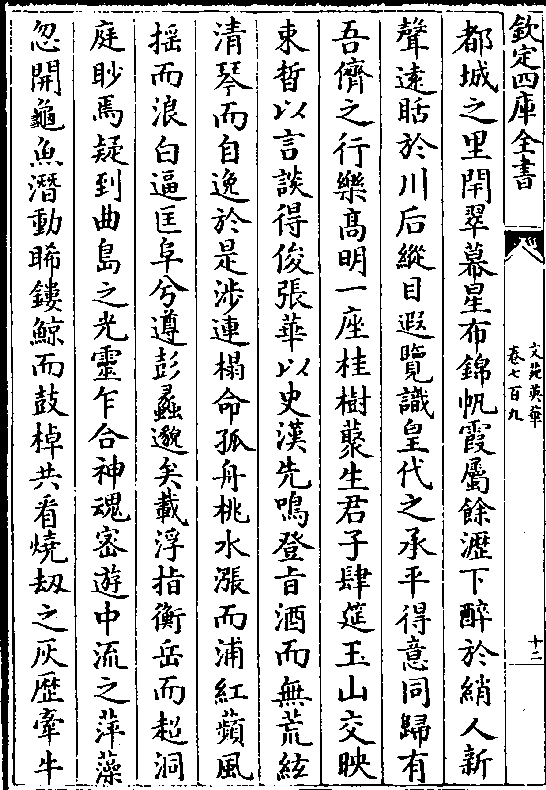 欽定四庫全書
文苑英華
卷七百九
十二
都城之里閈翠幕星布錦帆霞屬餘瀝下醉於綃人新
聲遠聒於川后縱目遐覽識皇代之承平得意同歸有
吾儕之行樂髙明一座桂樹藂生君子肆筵玉山交映
束晳以言談得俊張華以史漢先鳴登旨酒而無荒絃
清琴而自逸於是涉連榻命孤舟桃水漲而浦紅蘋風
揺而浪白逼匡阜兮遵彭蠡邈矣載浮指衡岳而超洞
庭眇焉疑到曲島之光靈乍合神魂宻遊中流之萍藻
忽開龜魚潛動睎鏤鯨而鼓棹共看燒刼之灰厯牽牛